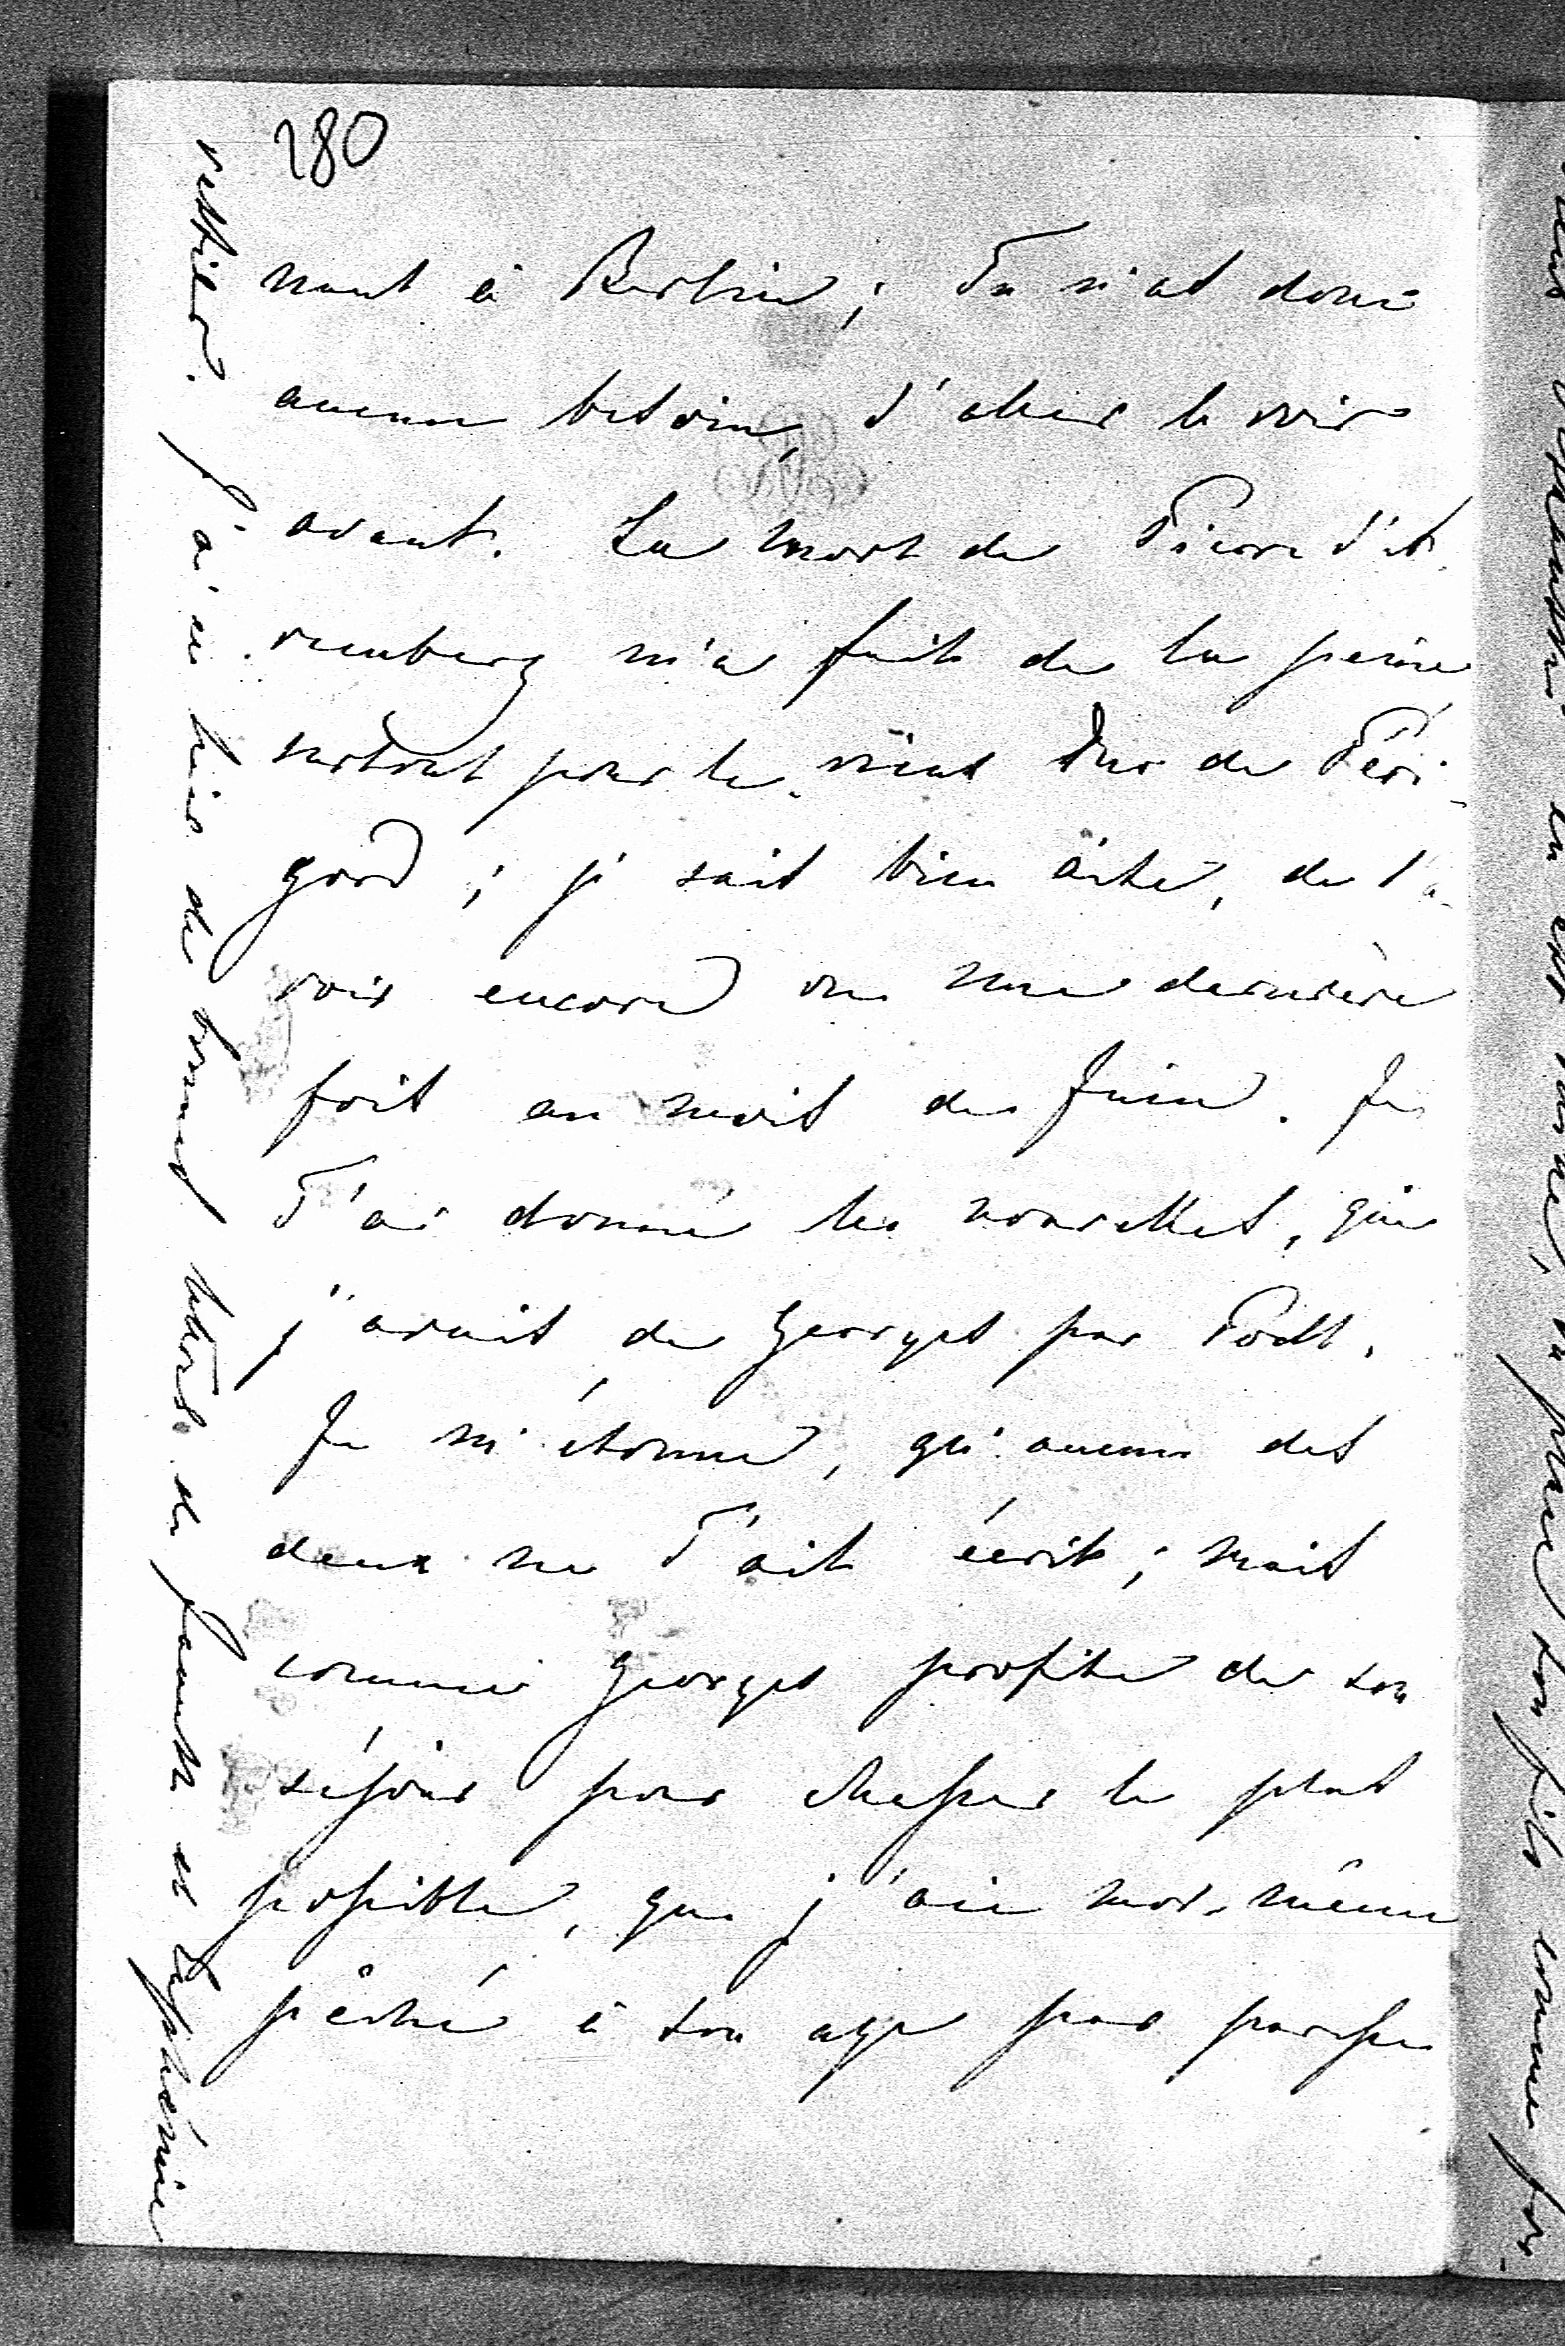 280
nant à Berlin ; Tu n'as donc
aucun besoin, d'aller le voir
avant. La mort de Pierre d'A-
renberg m'a fait de la peine,
surtout pour le vieux Duc de Péri-
gord ; je suis bien aise, de l'a-
voir encore vu une dernière
fois au mois de Juin. Je
T'ai donné les nouvelles, que
j'avais de Georges par Podb.
Je m'étonne, qu'aucun des
deux ne T'ait écrit ; mais
comme Georges profite de son
séjour pour chasser le plus
possible, que j'aie moi-même
pêché à son age par paresse
j'ai eu hier de bonnes lettres de fanette et Euphémie